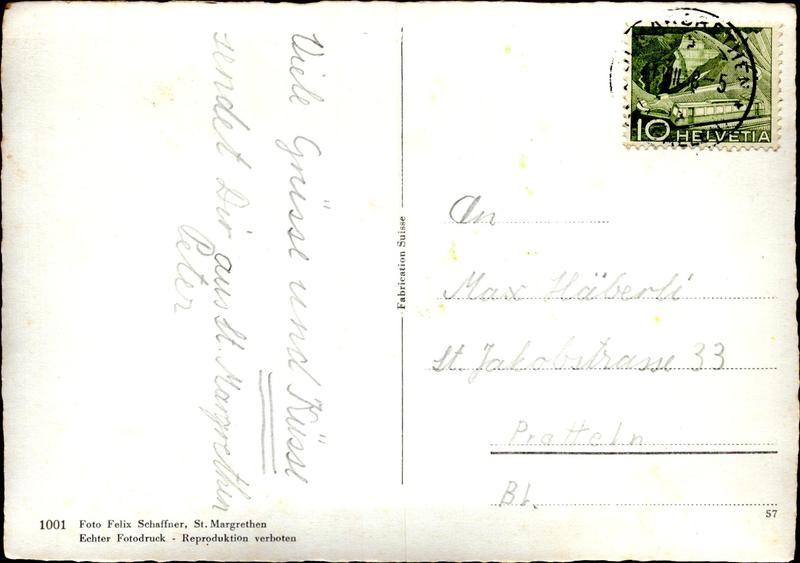 Viele Grüsse und Küsse
sendet Dir aus St. Margrethen
Peter
Fabrication Suisse
10 HELVETIA
An
Max Häberli
St. Jakobstrasse 33
Pratteln
Bl.
57
1001 Foto Felix Schaffner, St. Margrethen
Echter Fotodruck - Reproduktion verboten